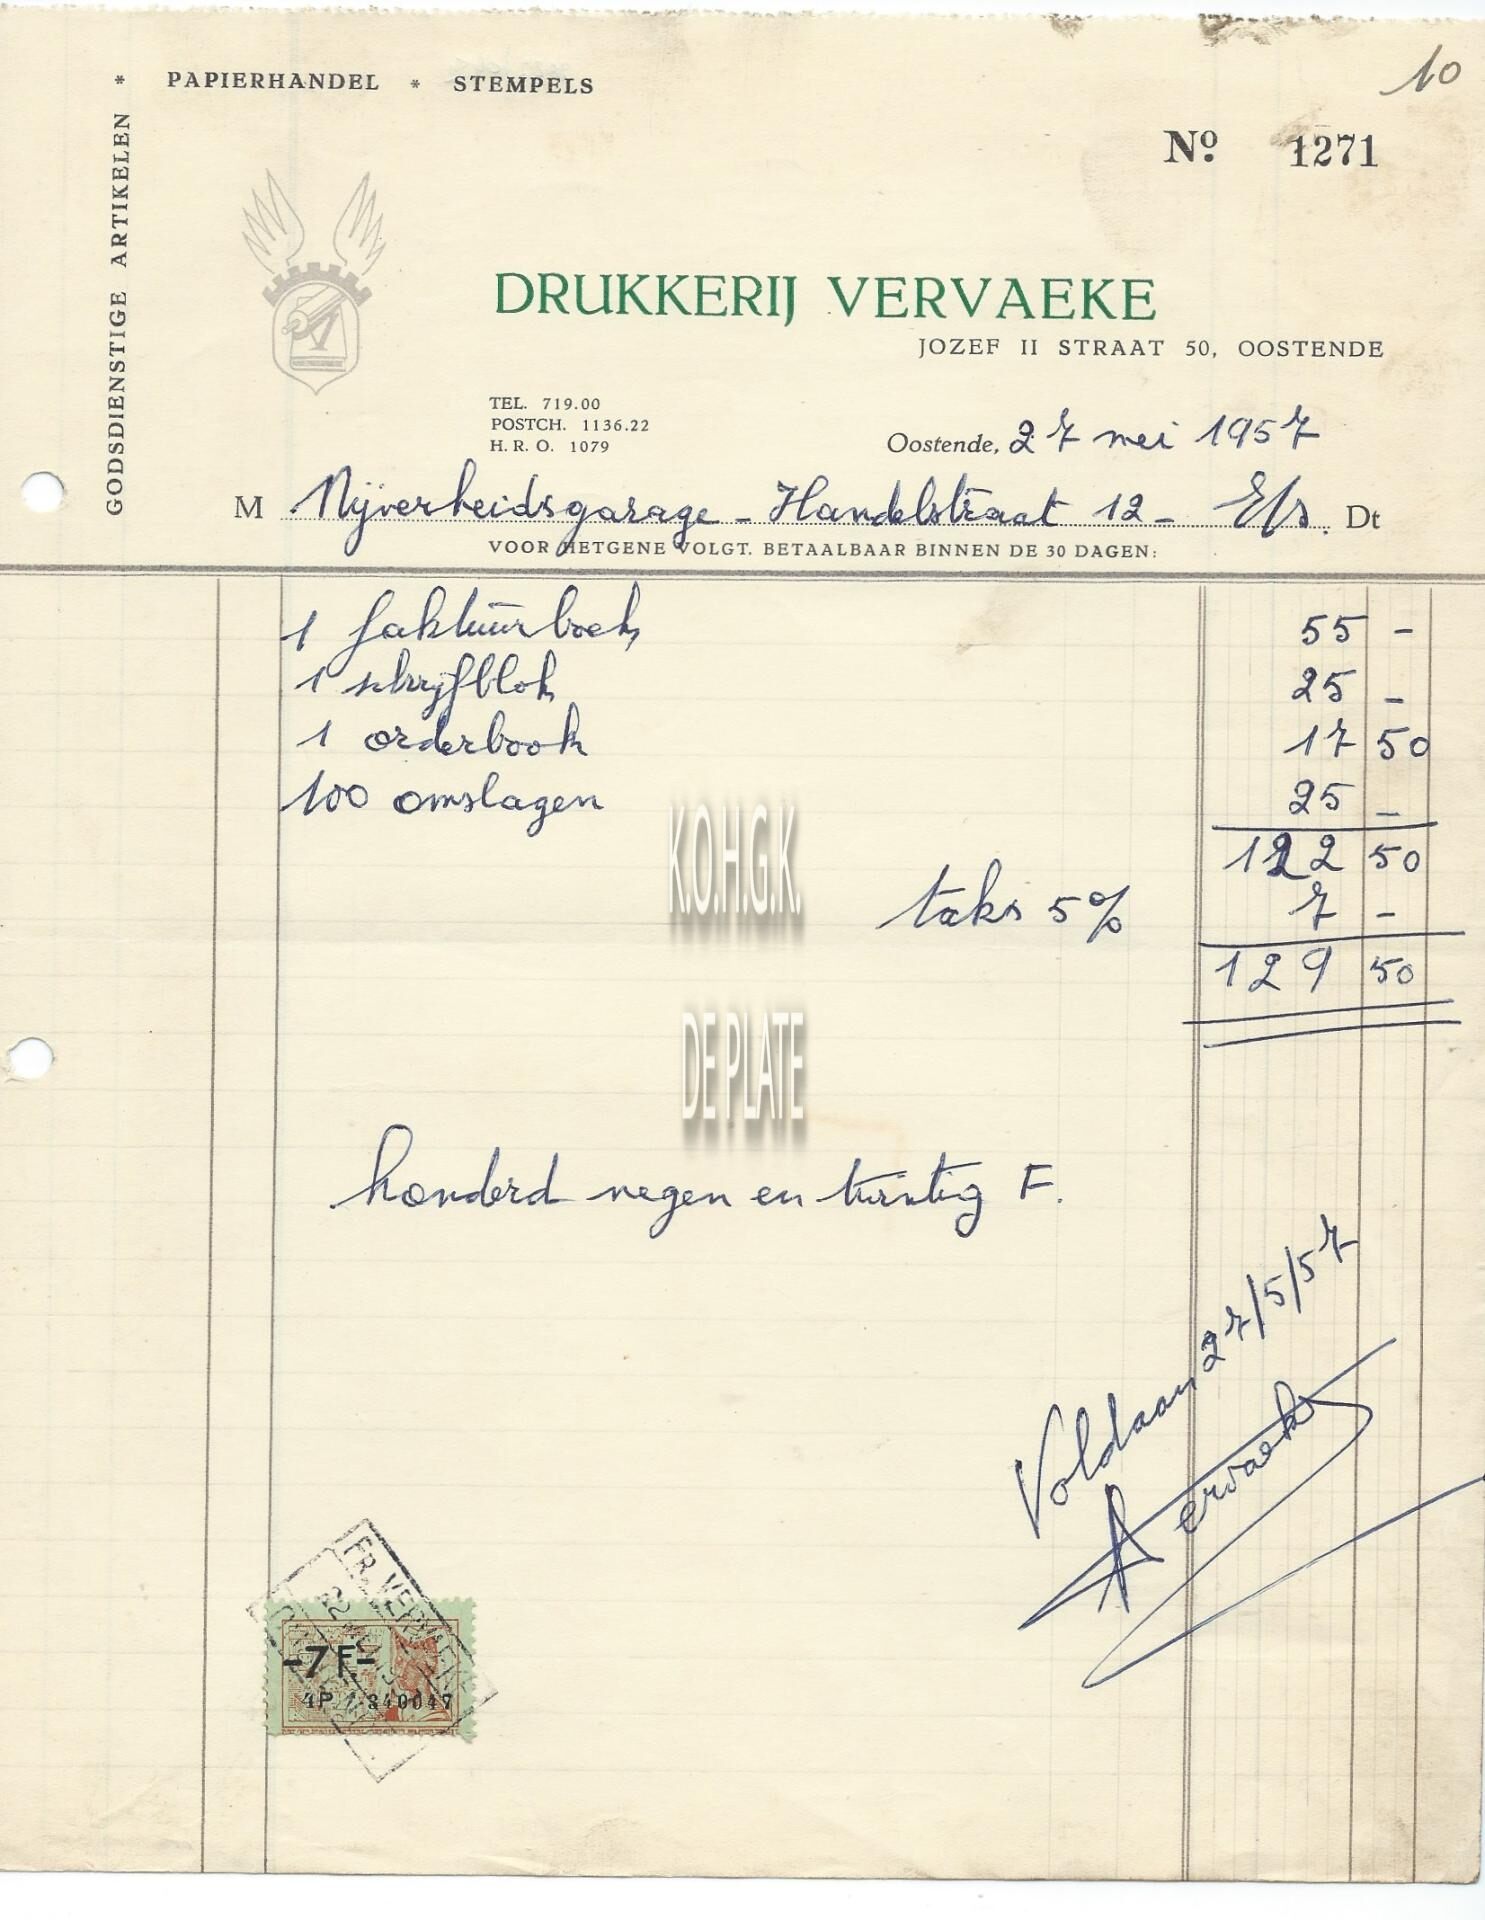 10
* PAPIERHANDEL * STEMPELS
GODSDIENSTIGE ARTIKELEN
Nº 1271
DRUKKERIJ VERVAEKE
JOZEF II STRAAT 50, OOSTENDE
TEL. 719.00
POSTCH. 1136.22
H. R. O. 1079
Oostende, 27 mei 1957
M Nijverheidsgarage - Handelstraat 12 - E/s. Dt
VOOR HETGENE VOLGT. BETAALBAAR BINNEN DE 30 DAGEN:
1 faktuurboek 55 -
1 schrijfblok 25 -
1 orderbook 17 50
100 omslagen 25 -
122 50
taks 5% 7 -
129 50
K.O.H.G.K.
DE PLATE
honderd negen en twintig F.
Voldaan 27/5/57
Vervaeke
FR. VERVAEKE
-7 F-
4P 340047